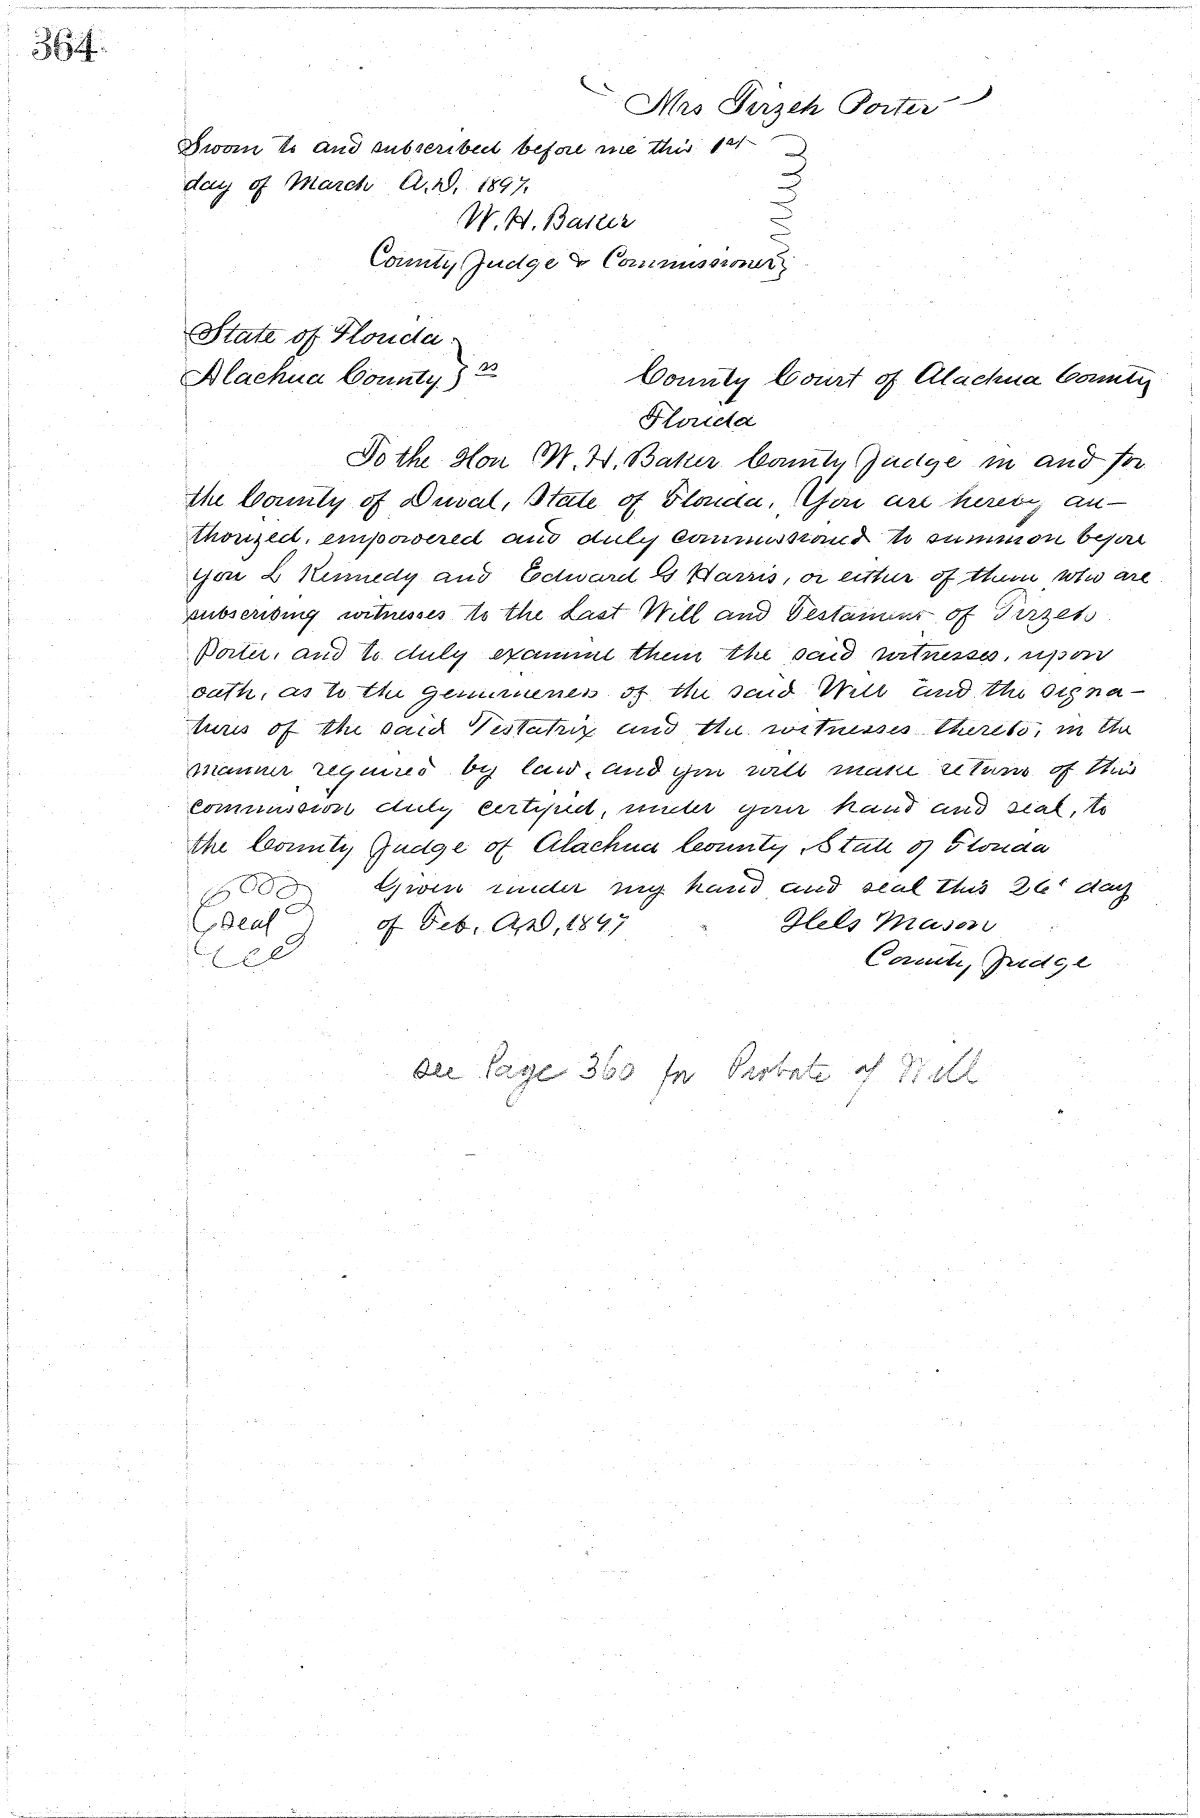 364.
Mrs Tirzeh Porter
Sworn to and subscribed before me this 1st
day of March A.D. 1897.
W. H. Baker
County Judge & Commissioner
State of Florida
Alachua County } ss
County Court of Alachua County
Florida
To the Hon W. H. Baker County Judge in and for
the County of Duval, State of Florida. You are hereby au-
thorized, empowered and duly commissioned to summon before
you L Kennedy and Edward G Harris, or either of them who are
subscribing witnesses to the Last Will and Testament of Tirzeh
Porter, and to duly examine them the said witnesses, upon
oath, as to the genuineness of the said Will and the signa-
tures of the said Testatrix and the witnesses thereto, in the
manner required by law, and you will make return of this
commission duly certified, under your hand and seal, to
the County Judge of Alachua County, State of Florida
Given under my hand and seal this 26" day
(Seal) of Feb. A.D. 1897 Mason
County Judge
see Page 360 for Probate of Will